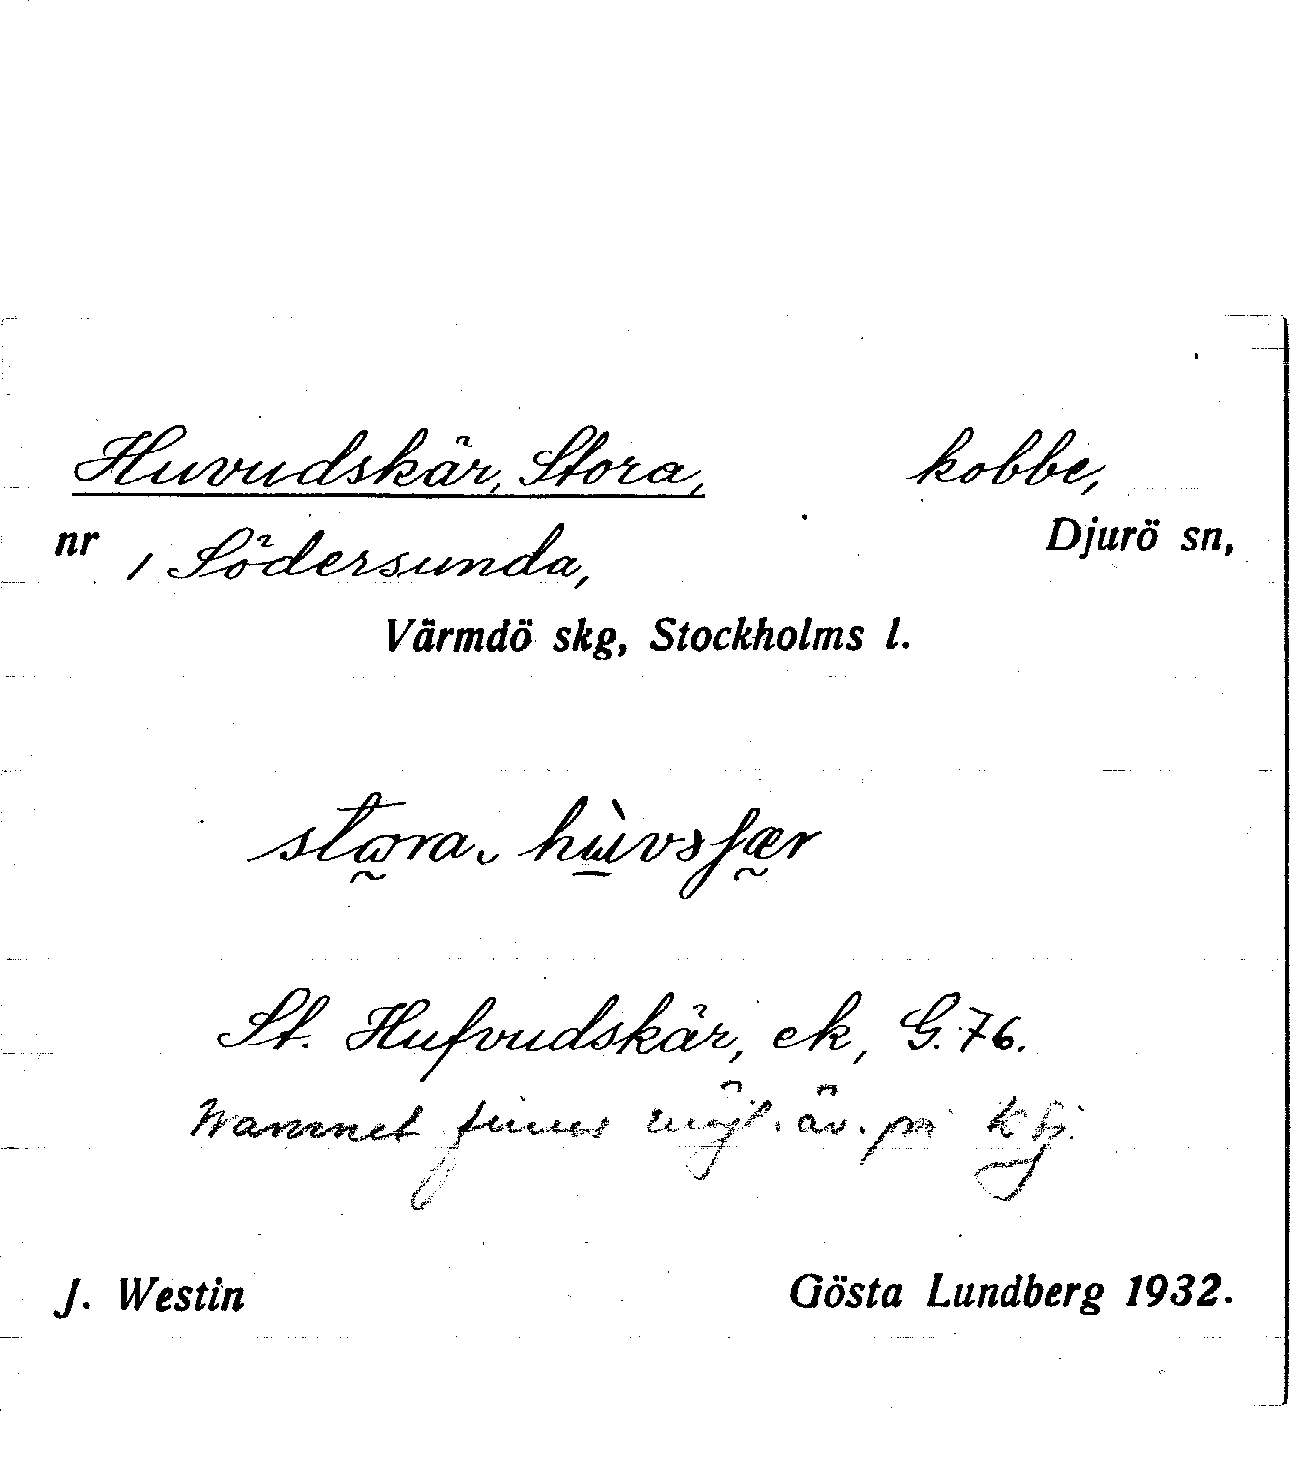 Huvudskär, Stora, kobbe,
nr / Södersunda, Djurö sn,
Värmdö skg, Stockholms l.
St. Hufvudskär, ek, G. 76.
Namnet finnes möjl. äv. på
J. Westin Gösta Lundberg 1932.